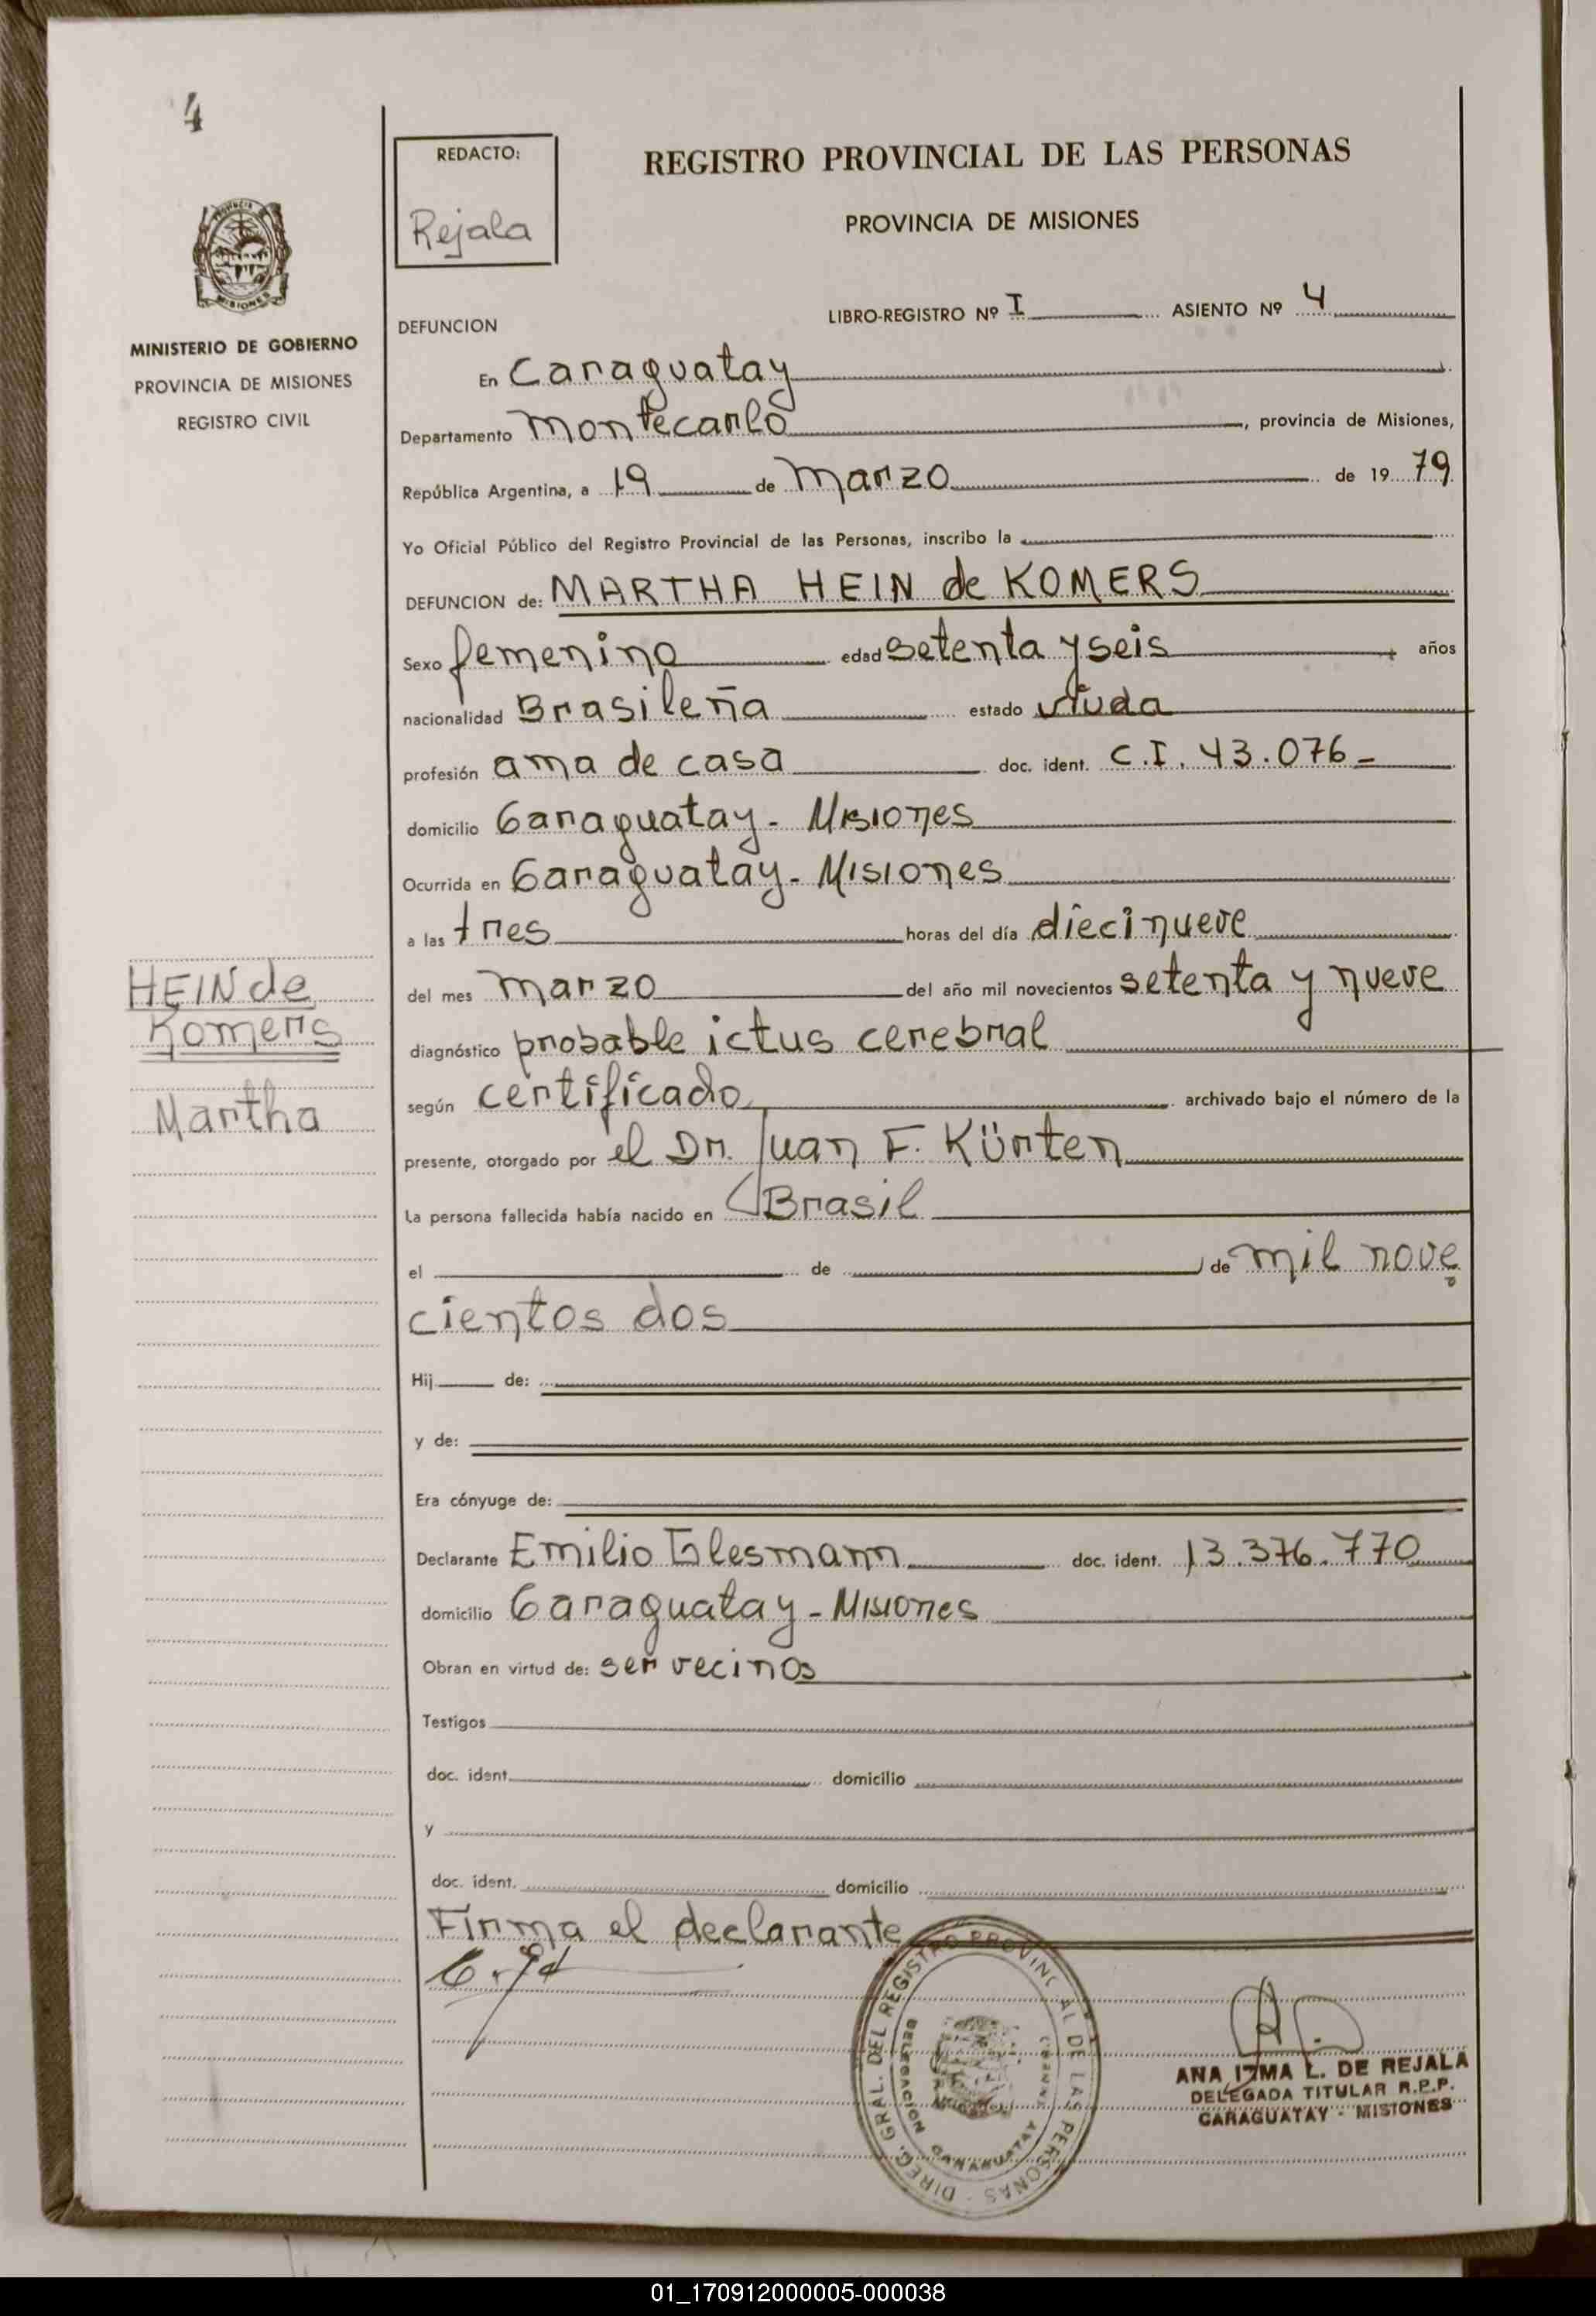 4
REDACTO:
Rejala
REGISTRO PROVINCIAL DE LAS PERSONAS
PROVINCIA DE MISIONES
MINISTERIO DE GOBIERNO
PROVINCIA DE MISIONES
REGISTRO CIVIL
LIBRO-REGISTRO Nº I ASIENTO Nº 4
DEFUNCION
En Caraguatay
Departamento Montecarlo, provincia de Misiones,
República Argentina, a 19 de Marzo de 1979
Yo Oficial Público del Registro Provincial de las Personas, inscribo la
DEFUNCION de: MARTHA HEIN de KOMERS
Sexo femenino edad setenta y seis años
nacionalidad Brasileña estado viuda
profesión ama de casa doc. ident. C.I. 43.076-
domicilio Caraguatay - Misiones
Ocurrida en Caraguatay - Misiones
a las tres horas del día diecinueve
del mes marzo del año mil novecientos setenta y nueve
diagnóstico probable ictus cerebral
según certificado archivado bajo el número de la
presente, otorgado por el Dr. Juan F. Kürten
La persona fallecida había nacido en Brasil
el de de mil nove
cientos dos
HEIN de
Komers
Martha
Hij de:
y de:
Era cónyuge de:
Declarante Emilio Glesmann doc. ident. 13.376.770
domicilio Caraguatay - Misiones
Obran en virtud de: ser vecinos
Testigos
doc. ident. domicilio
y
doc. ident. domicilio
Firma el declarante
DIREC. GRAL. DEL REGISTRO PROVINCIAL DE LAS PERSONAS
DELEGACION CARAGUATAY
ANA IRMA L. DE REJALA
DELEGADA TITULAR R.P.P.
CARAGUATAY - MISIONES
01_170912000005-000038